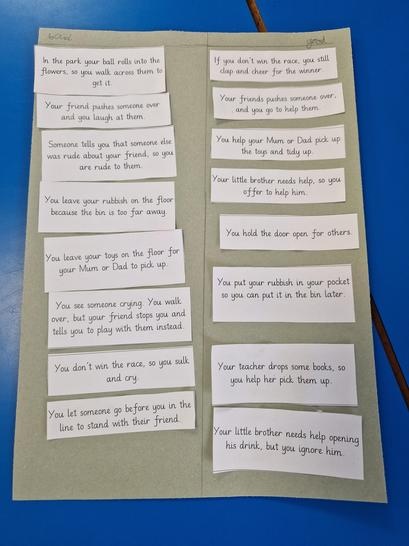 bad
good
In the park your ball rolls into the
flowers, so you walk across them to
get it.
Your friend pushes someone over
and you laugh at them.
Someone tells you that someone else
was rude about your friend, so you
are rude to them.
You leave your rubbish on the floor
because the bin is too far away.
You leave your toys on the floor for
your Mum or Dad to pick up.
You see someone crying. You walk
over, but your friend stops you and
tells you to play with them instead.
You don't win the race, so you sulk
and cry.
You let someone go before you in the
line to stand with their friend.
If you don't win the race, you still
clap and cheer for the winner.
Your friends pushes someone over,
and you go to help them.
You help your Mum or Dad pick up
the toys and tidy up.
Your little brother needs help, so you
offer to help him.
You hold the door open for others.
You put your rubbish in your pocket
so you can put it in the bin later.
Your teacher drops some books, so
you help her pick them up.
Your little brother needs help opening
his drink, but you ignore him.